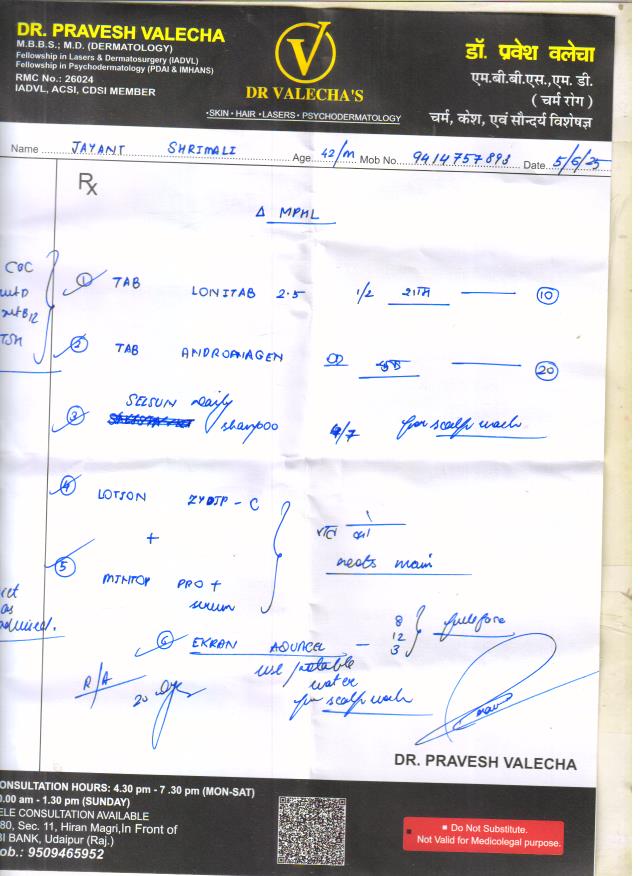 DR. PRAVESH VALECHA
M.B.B.S; M.D. (DERMATOLOGY)
Fellowship in Lasers & Dermatosurgery (IADVL)
Fellowship in Psychodermatology (PDAI & IMHANS)
RMC No.: 26024
IADVL, ACSI, CDSI MEMBER
V
DR VALECHA'S
•SKIN • HAIR •LASERS • PSYCHODERMATOLOGY
डॉ. प्रवेश वलेचा
एम.बी.बी.एस.,एम. डी.
( चर्म रोग )
चर्म, केश, एवं सौन्दर्य विशेषज्ञ
Name JAYANT SHRIMALI Age 42/M Mob No. 9414757893 Date 5/6/25
Rx
Δ MPHL
CBC
vit D
vit B12
TSH
1 TAB LONITAB 2.5 1/2 शाम 10
2 TAB ANDROANAGEN 20
3 SELSUN Daily shampoo 4/7 for scalp wash
4 LOTION ZYDIP - C
+
5 MINTOP PRO + serum
रात को
neets main
as
advised.
6 EKRAN AQUAGEL - 8 12 3
use potable
water
for scalp wash
R/A 20 Days
DR. PRAVESH VALECHA
CONSULTATION HOURS: 4.30 pm - 7 .30 pm (MON-SAT)
0.00 am - 1.30 pm (SUNDAY)
ELE CONSULTATION AVAILABLE
80, Sec. 11, Hiran Magri,In Front of
BI BANK, Udaipur (Raj.)
ob.: 9509465952
▪ Do Not Substitute.
▪ Not Valid for Medicolegal purpose.